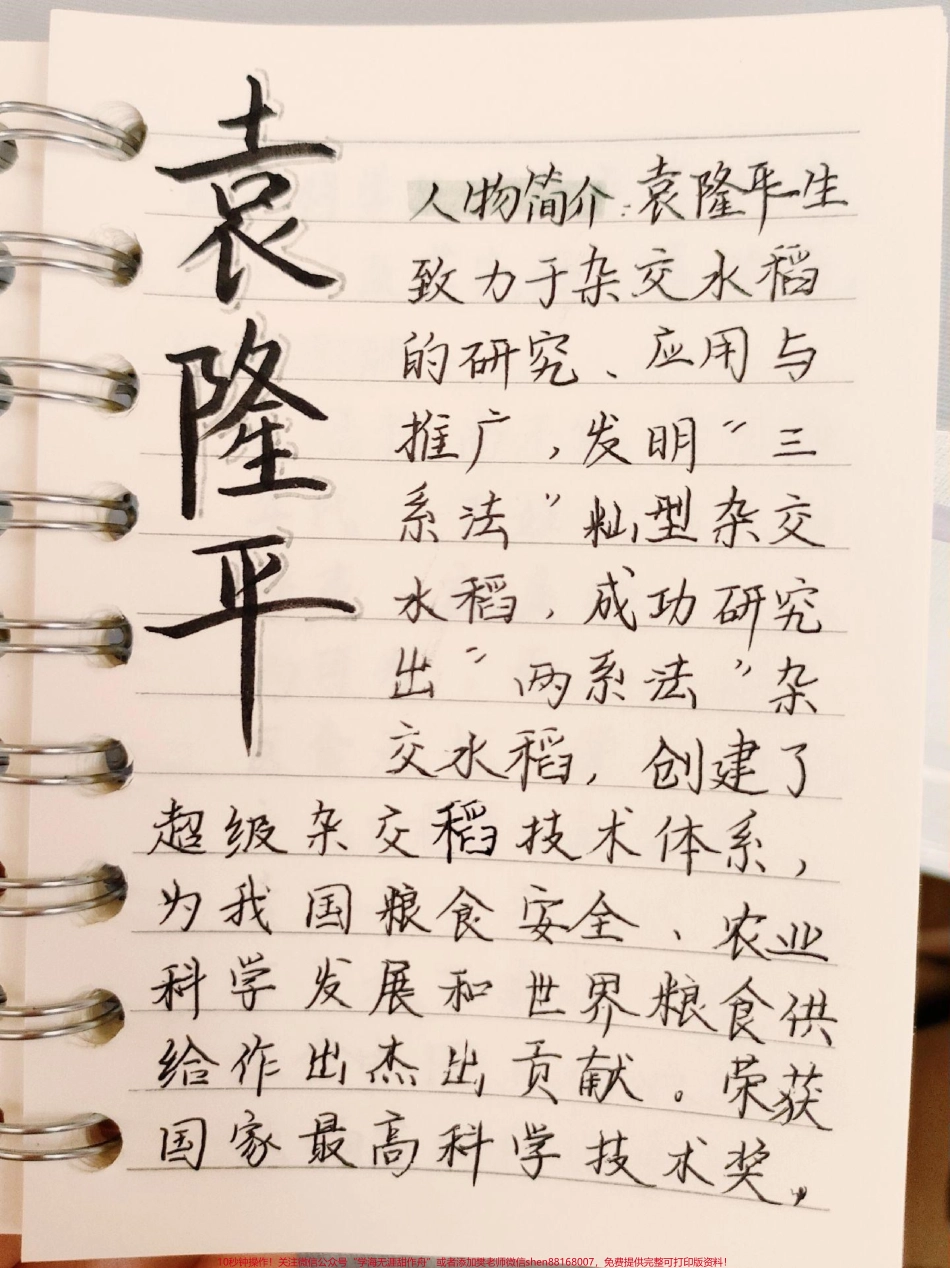 袁隆平
人物简介:袁隆平生
致力于杂交水稻
的研究、应用与
推广,发明“三
系法”籼型杂交
水稻,成功研究
出“两系法”杂
交水稻,创建了
超级杂交稻技术体系,
为我国粮食安全、农业
科学发展和世界粮食供
给作出杰出贡献。荣获
国家最高科学技术奖。
10秒钟操作!关注微信公众号“学海无涯甜作舟”或者添加樊老师微信shen88168007,免费提供完整可打印版资料!